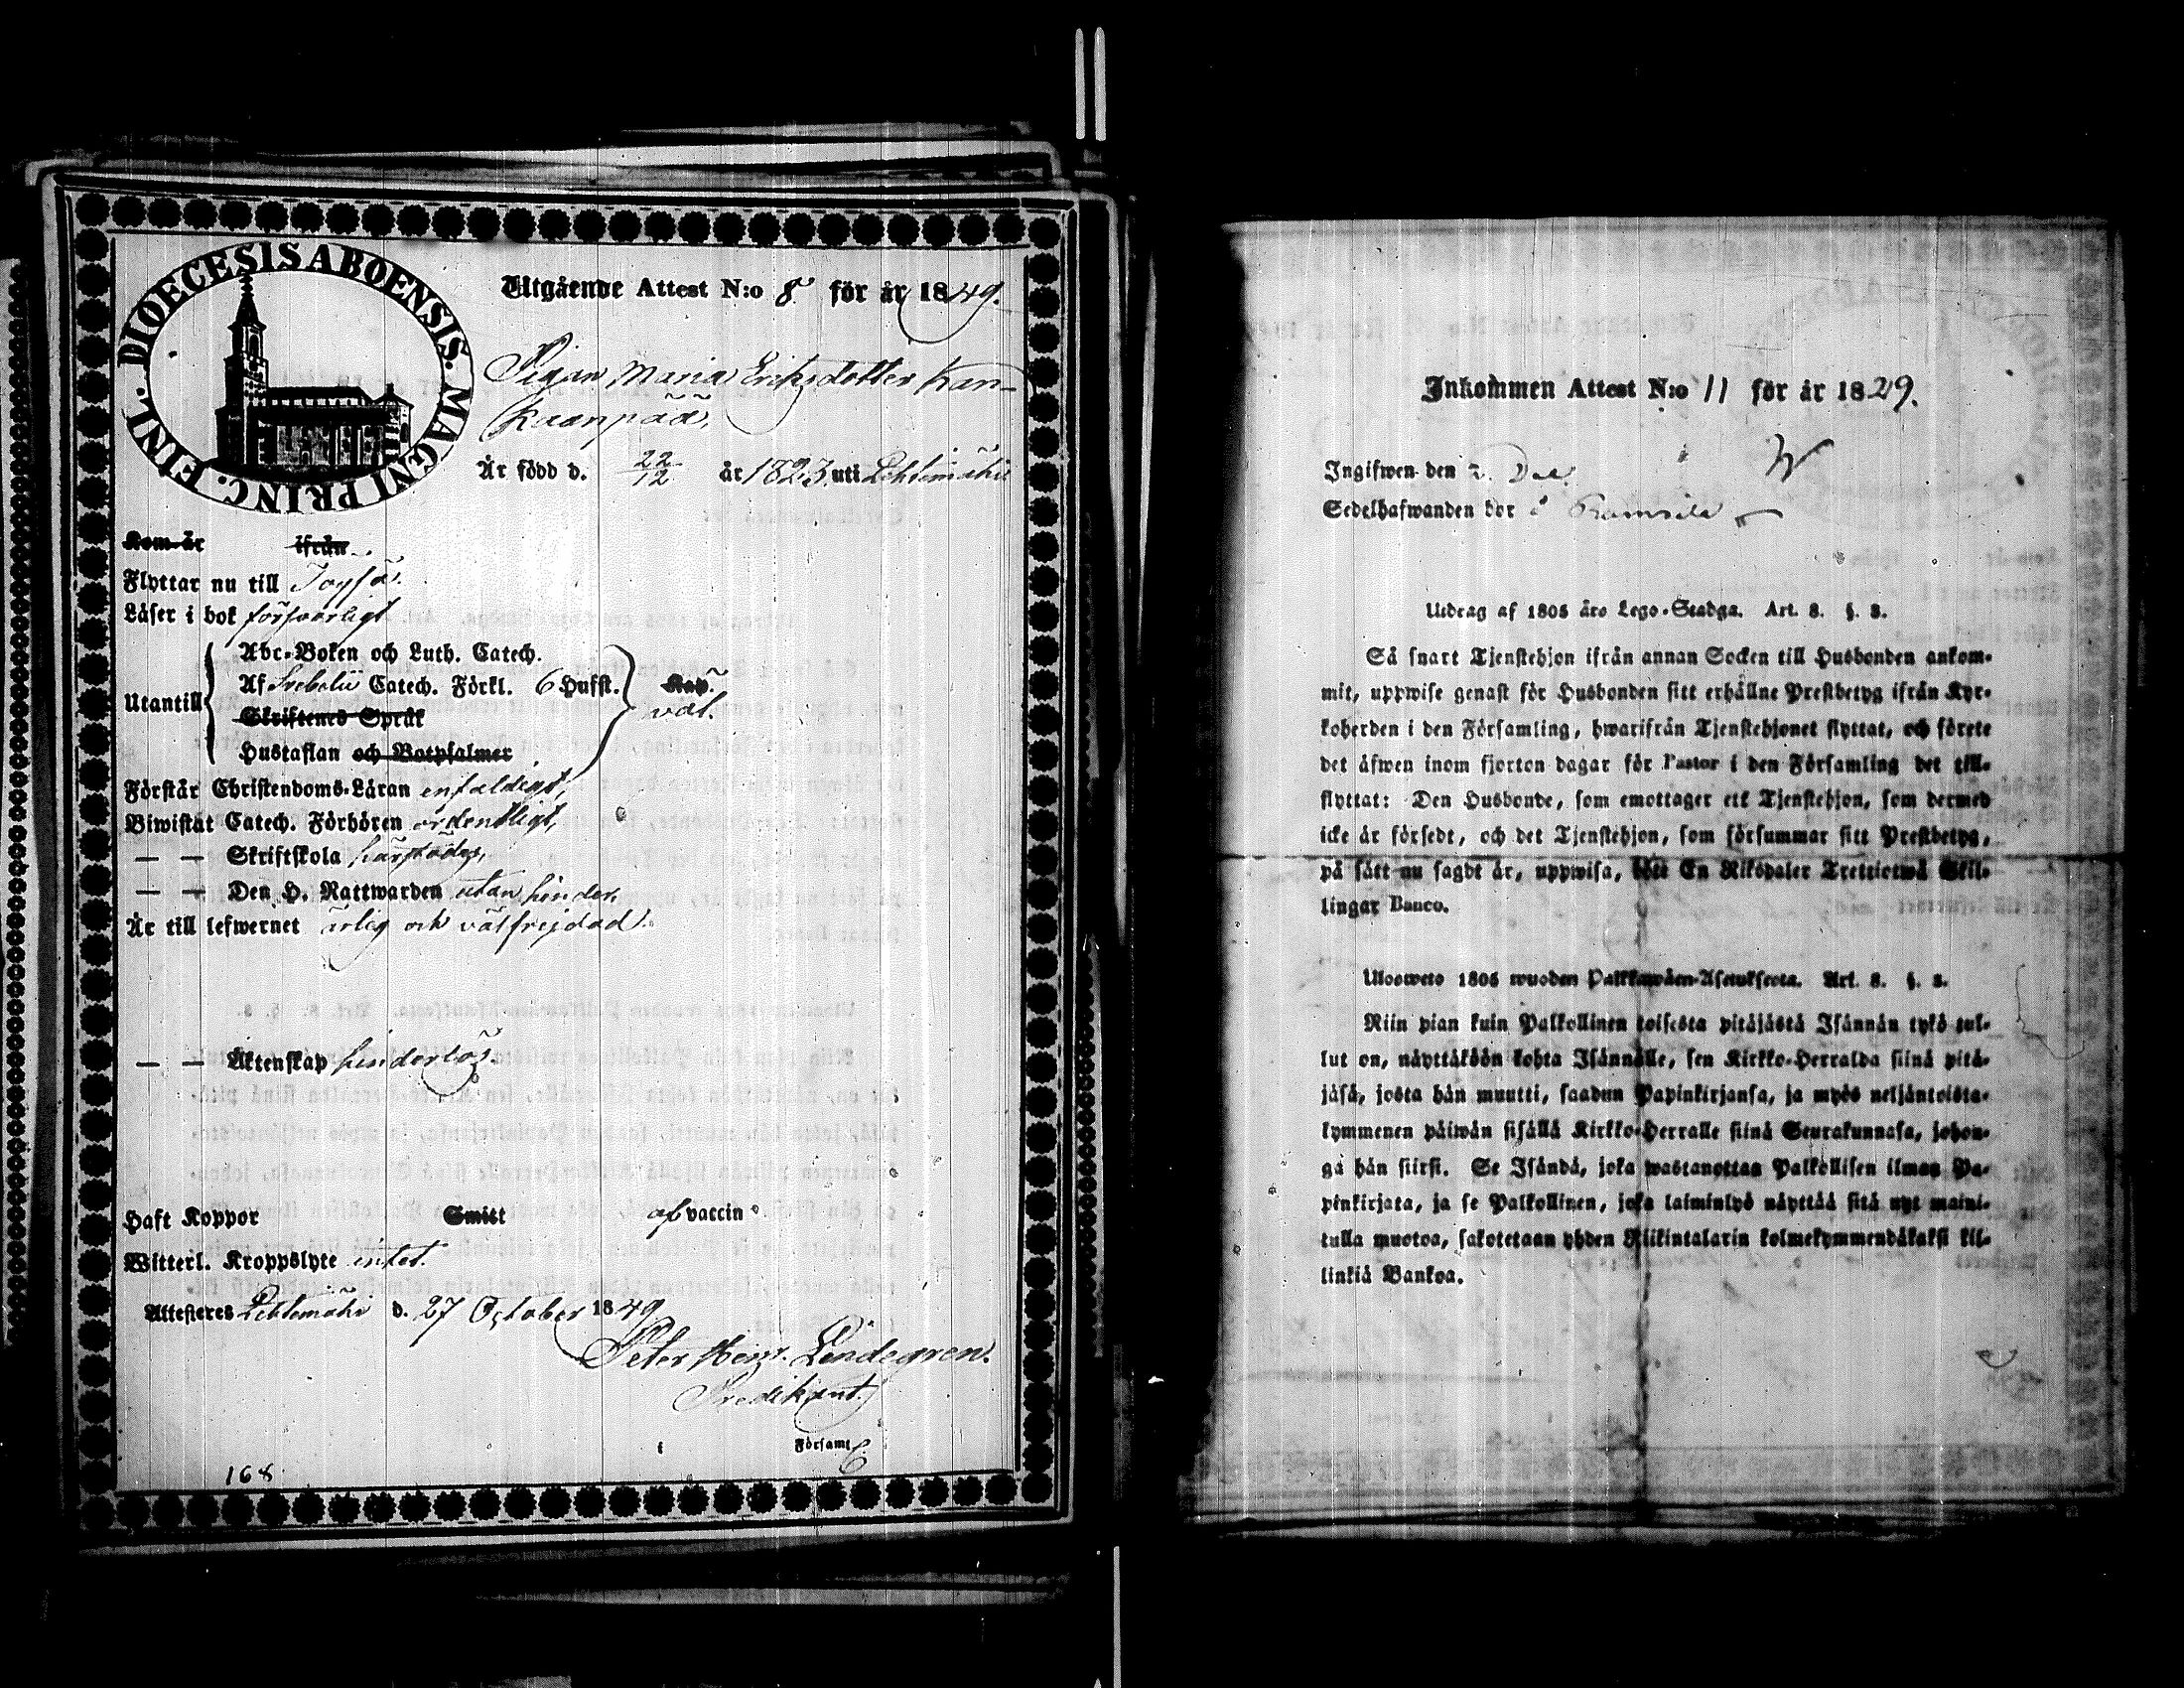 DIOECESIS ABOENSIS. MAGNI PRINC. FINL.
Utgående Attest N:o 8 för år 1849.
Pigan Maria Eriksdotter Kan-
kaanpää,
Är född d. 22/12 år 1823 uti Lehtimäki
Kom år ifrån
Flyttar nu till Töysä.
Läser i bok försvarligt
Abc-Boken och Luth. Catech.
Af Svebelii Catech. Förkl. 6 Hufst.
Utantill
Skriftenes Språk
Hustaflan och Botpsalmer
Kap.
väl.
Förstår Christendoms-Läran enfaldigt,
Biwistat Catech. Förhören ordentligt,
— — Skriftskola
— — Den H. Nattwarden utan hinder.
Är till lefwernet ärlig och välfrejdad.
— — Äktenskap hinderlös.
Haft Koppor Smitt af vaccin
Witterl. Kroppslyte intet.
Attesteres Lehtimäki d. 27 October 1849
Peter Henr. Lindegren.
Predikant.
i Församl
168
Inkommen Attest N:o 11 för år 1829.
Ingifwen den 2. Dec.
Sedelhafwanden bor å
Utdrag af 1805 års Lego-Stadga. Art. 8. §. 3.
Så snart Tjenstehjon ifrån annan Socken till Husbonden ankom-
mit, uppwise genast för Husbonden sitt erhållne Prestbetyg ifrån Kyr-
koherden i den Församling, hwarifrån Tjenstehjonet flyttat, och förete
det äfwen inom fjorton dagar för Pastor i den Församling det till-
flyttat: Den Husbonde, som emottager ett Tjenstehjon, som dermed
icke är försedt, och det Tjenstehjon, som försummar sitt Prestbetyg,
på sätt nu sagdt är, uppwisa, böte En Riksdaler Trettiotwå Skil-
lingar Banco.
Ulosweto 1805 wuoden Palkkawäen-Asetuksesta. Art. 8. §. 3.
Niin pian kuin Palkollinen toisesta pitäjästä Isännän tykö tul-
lut on, näyttäköön kohta Isännälle, sen Kirkko-Herralda siinä pitä-
jäsä, josta hän muutti, saadun Papinkirjansa, ja myös neljäntoista-
kymmenen päiwän sisällä Kirkko-Herralle siinä Seurakunnasa, johon-
ga hän siirsi. Se Isändä, joka wastanottaa Palkollisen ilman Pa-
pinkirjata, ja se Palkollinen, joka laiminlyö näyttää sitä nyt maini-
tulla muotoa, sakotetaan yhden Riikintalarin kolmekymmendäkaksi kil-
linkiä Bankoa.